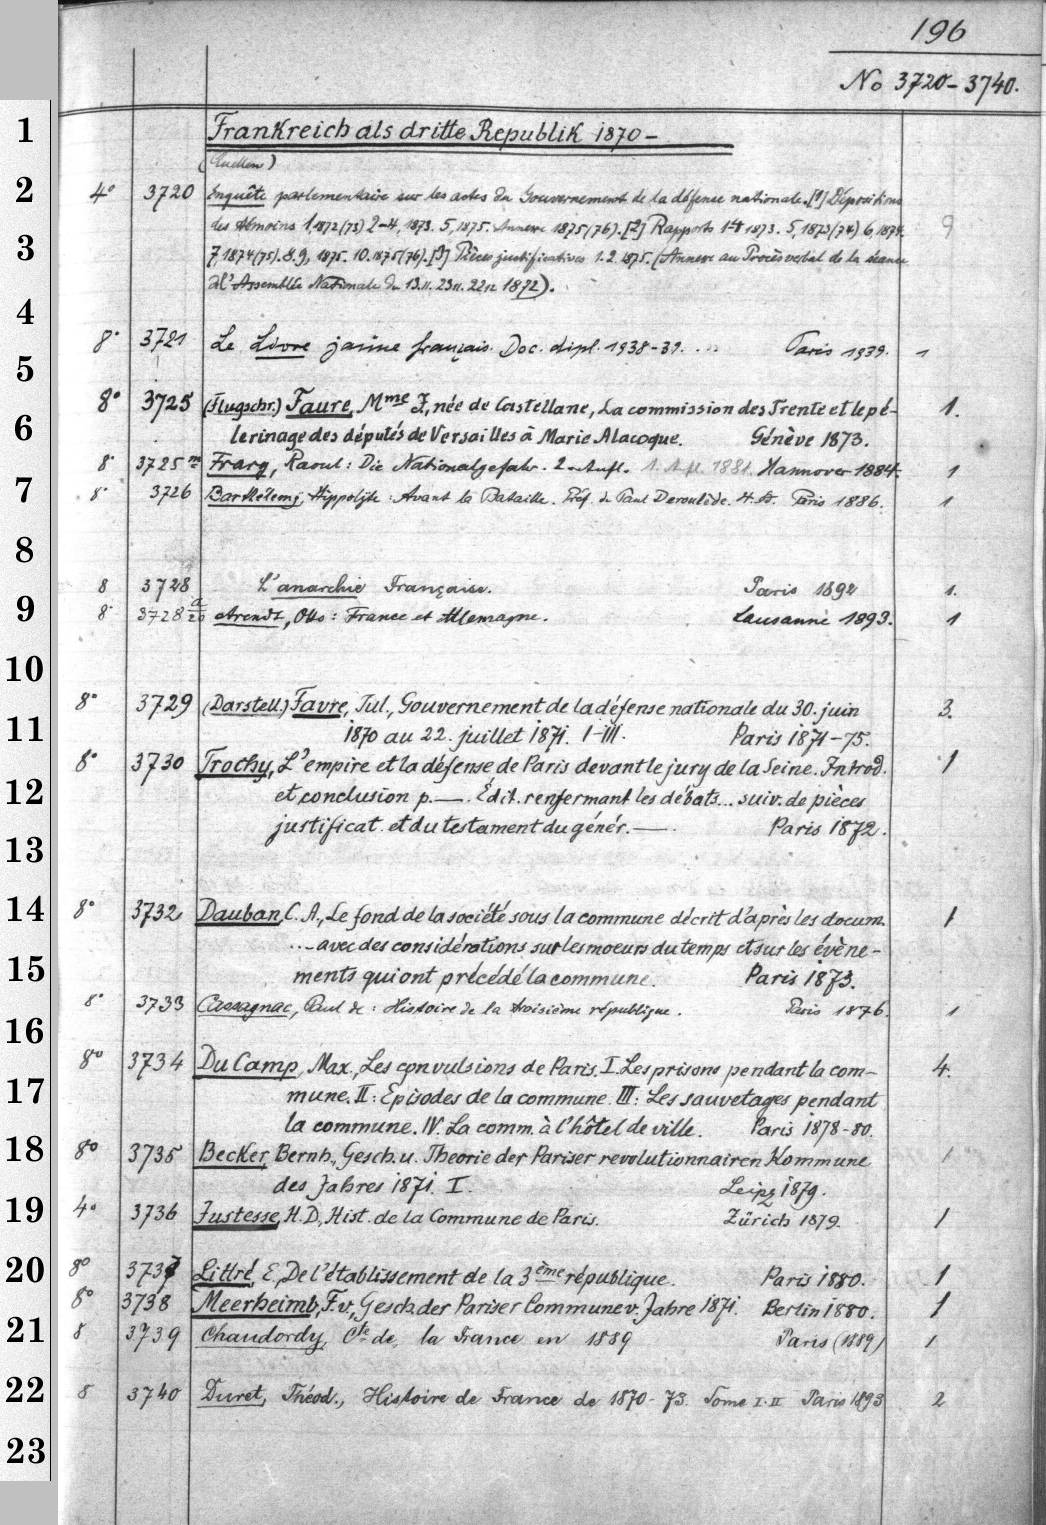 196
No 3720-3740.
1
Frankreich als dritte Republik 1870-
(Quellen)
2
4° 3720 Enquête parlementaire sur les actes du Gouvernement de la défense nationale. [1] Dépositions
des témoins 1, 1872(73) 2-4, 1873. 5, 1875. Annexe 1875(76). [2] Rapports 1-4 1873. 5, 1873(74) 6, 1874. 9
3
7, 1874(75). 8. 9, 1875. 10. 1875(76). [3] Pièces justificatives 1. 2. 1875. (Annexe au Procès verbal de la séance
de l'Assemblée Nationale du 13.11. 23.11. 22.12 1872).
4
8° 3721 Le Livre jaune français. Doc. dipl. 1938-39. ... Paris 1939. 1
5
8° 3725 (Flugschr.) Faure, Mme Z, née de Castellane, La commission des Trente et le pé-
6
lerinage des députés de Versailles à Marie Alacoque. Génève 1873. 1.
8° 3725m Frary, Raoul: Die Nationalgefahr. 2. Aufl. 1. Aufl. 1881. Hannover 1884. 1
7
8° 3726 Barthélemy, Hippolyte: Avant la Bataille. Préf. de Paul Deroulède. 4. Ed. Paris 1886. 1
8
8 3728 L'anarchie Française. Paris 1892 1.
9
8° 3728 a/20 Arendt, Otto: France et Allemagne. Lausanne 1893. 1
10
8° 3729 (Darstell.) Favre, Jul., Gouvernement de la défense nationale du 30. juin 3.
11
1870 au 22. juillet 1871. I-III. Paris 1871-75.
8° 3730 Trochy, L'empire et la défense de Paris devant le jury de la Seine. Introd. 1
12
et conclusion p.—. Édit. renfermant les débats... suiv. de pièces
justificat. et du testament du génér.—. Paris 1872.
13
14
8° 3732 Dauban, C. A., Le fond de la société sous la commune décrit d'après les docum. 1
... avec des considérations sur les moeurs du temps et sur les évène-
15
ments qui ont précédé la commune. Paris 1873.
8° 3733 Cassagnac, Paul de: Histoire de la troisième république. Paris 1876. 1
16
8° 3734 Du Camp, Max., Les convulsions de Paris. I. Les prisons pendant la com- 4.
17
mune. II: Episodes de la commune. III: Les sauvetages pendant
la commune. IV. La comm. à l'hôtel de ville. Paris 1878-80.
18
8° 3735 Becker, Bernh., Gesch. u. Theorie der Pariser revolutionnairen Kommune 1
des Jahres 1871. I. Leipz 1879.
19
4° 3736 Fustesse, H. D., Hist. de la Commune de Paris. Zürich 1879. 1
20
8° 3737 Littré, E, De l'établissement de la 3ème république. Paris 1880. 1
8° 3738 Meerheimb, F. v, Gesch. der Pariser Commune v. Jahre 1871. Berlin 1880. 1
21
8 3739 Chaudordy, Cte de, la France en 1889 Paris (1889) 1
22
8 3740 Duret, Théod., Histoire de France de 1870-73. Tome I. II Paris 1893 2
23